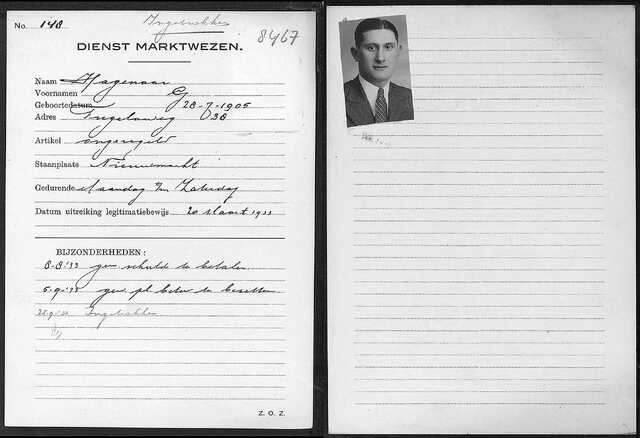 Ingetrokken
No. 148
8467
DIENST MARKTWEZEN.
Naam Hagenaar
Voornamen G
Geboortedatum 28-7-1905
Adres 38
Artikel ongeregeld
Staanplaats Nieuwmarkt
Gedurende Maandag t/m Zaterdag
Datum uitreiking legitimatiebewijs 20 Maart 1933
BIJZONDERHEDEN:
8-8-'33 geen schuld te betalen
5-9-'33 te bezetten
Ingetrokken
Z. O. Z.